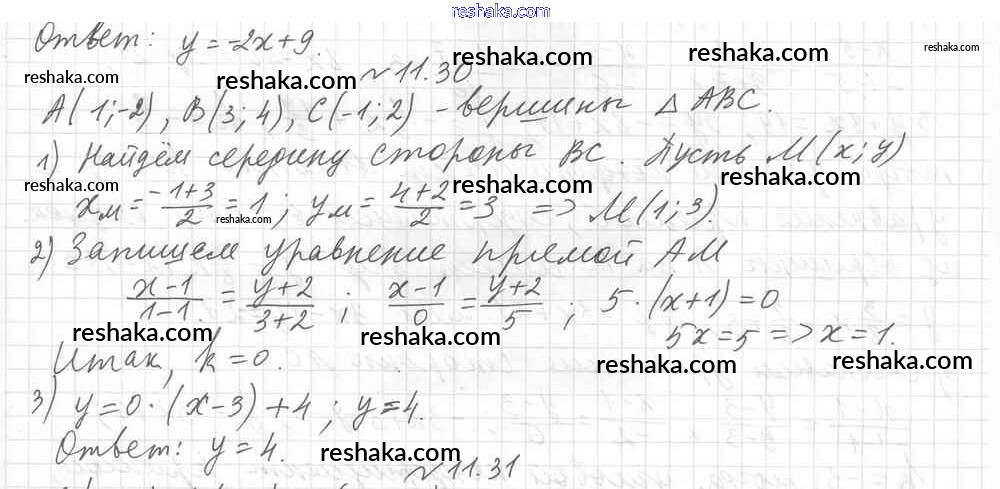 reshaka.com
Ответ: y = -2x + 9.
reshaka.com reshaka.com reshaka.com
reshaka.com reshaka.com № 11.30
A(1;-2), B(3;4), C(-1;2) - вершины △ ABC.
reshaka.com reshaka.com reshaka.com
1) Найдём середину стороны BC. Пусть M(x;y)
reshaka.com reshaka.com reshaka.com
x_M = (-1+3)/2 = 1; y_M = (4+2)/2 = 3 => M(1;3).
reshaka.com
2) Запишем уравнение прямой AM
(x-1)/(1-1.) = (y+2)/(3+2); (x-1)/0 = (y+2)/5; 5·(x+1)=0
reshaka.com reshaka.com 5x=5 => x=1.
Итак, k=0. reshaka.com reshaka.com
3) y=0·(x-3)+4; y=4.
Ответ: y=4. reshaka.com
reshaka.com № 11.31